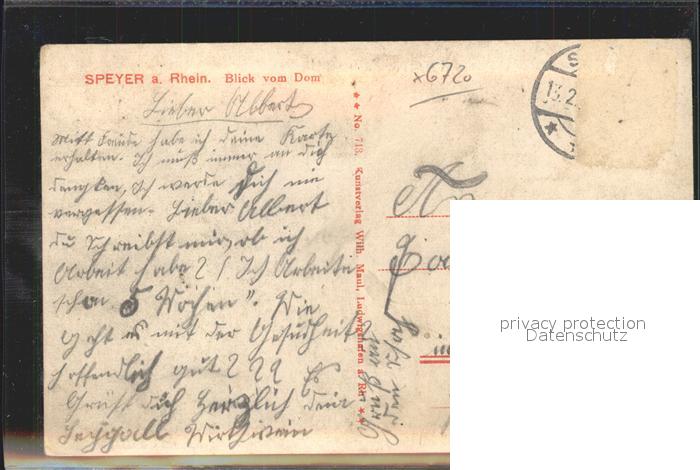 SPEYER a. Rhein. Blick vom Dom
x6720
Lieber Albert
Mitt freude habe ich deine Karte
erhalten. Ich muß immer an dich
dencken, Ich werde Dich nie
vergessen. Lieber Albert
du schreibst mir, ob ich
Arbeit habe ? Ich Arbeite
schon 5 Wochen". Wie
geht es mit der Gesudheit ?
hoffendlich gut ? ? ? Es
Grüst dich Herzlich dein
** No. 713. Kunstverlag Wilh. Maul, Ludwigshafen a. Rh. **
An
13.2.
privacy protection
Datenschutz